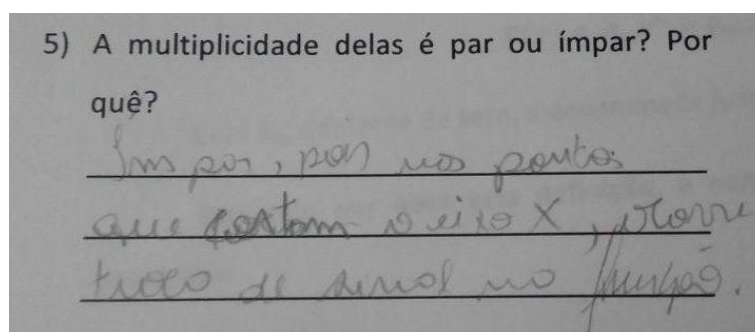 5) A multiplicidade delas é par ou ímpar? Por
quê?
Ímpar, pois nos pontos
que cortam o eixo X, ocorre
troca de sinal na função.